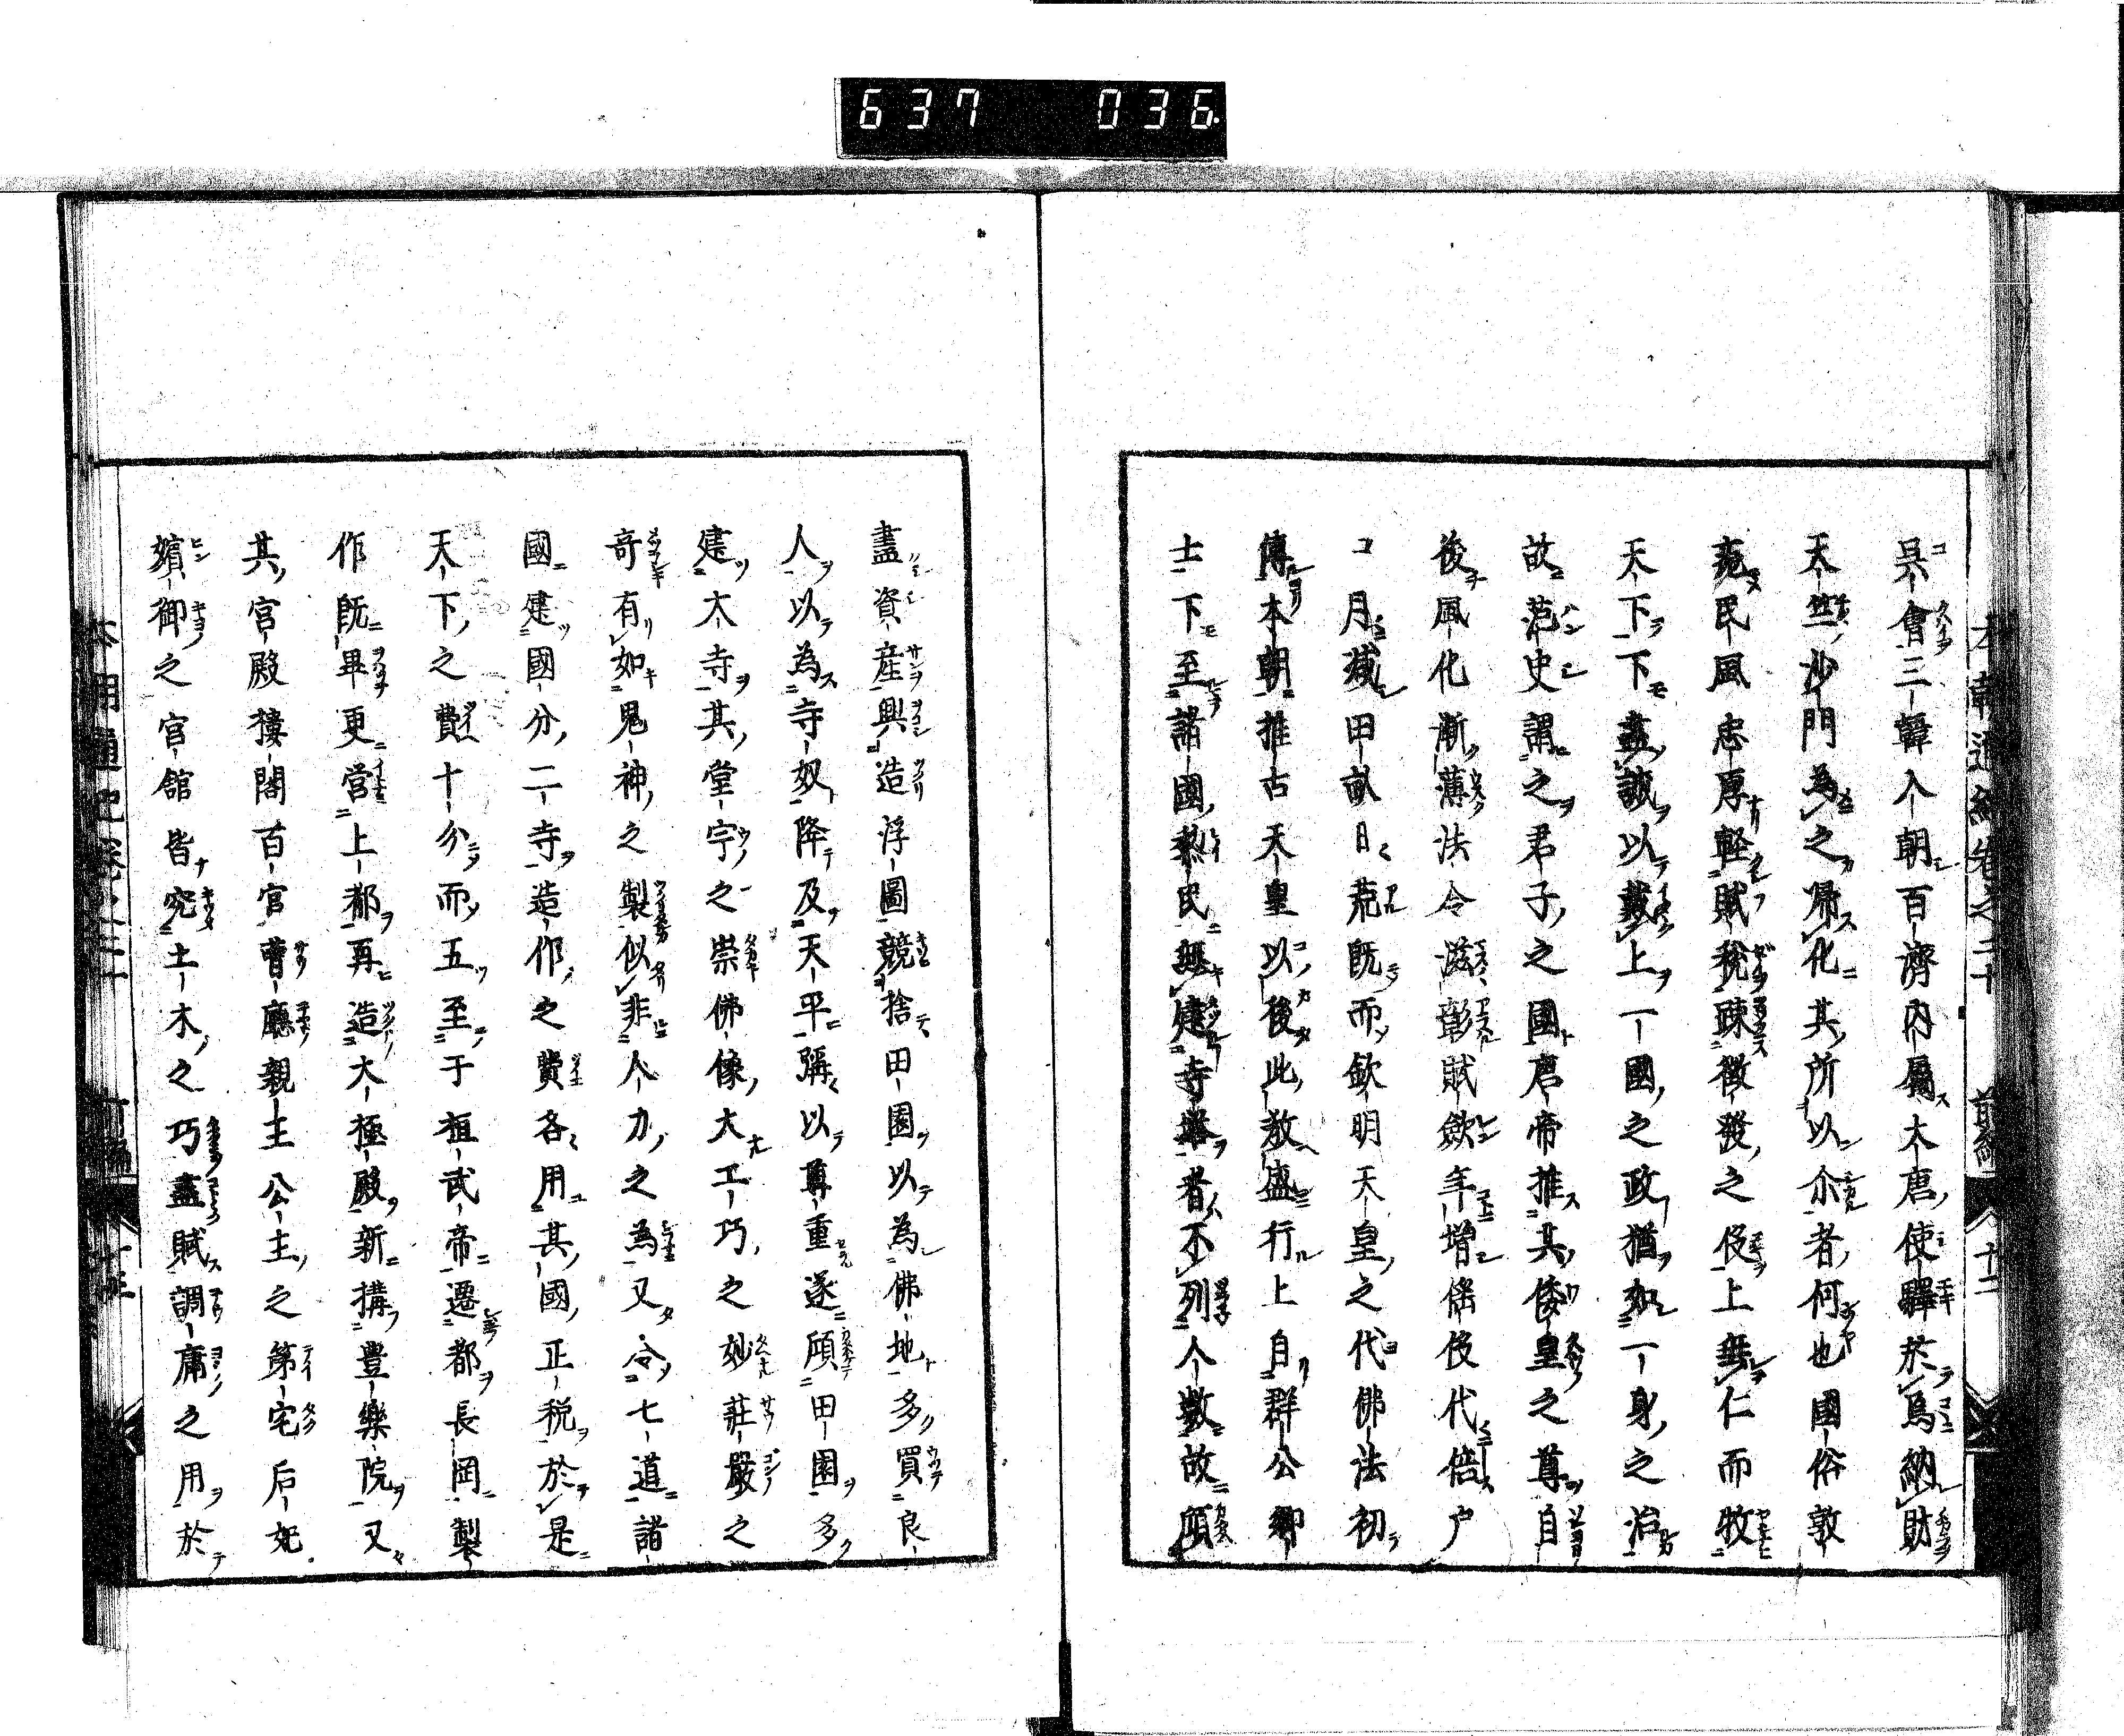 637 036
吳會三韓入朝百濟內屬大唐使驛於焉納財
天竺沙門為之歸化其所以尒者何也國俗敦
厖民風忠厚輕賦稅疎徵發之役上垂仁而牧
天下下盡誠以戴上一國之政猶如一身之治
故范史謂之君子之國唐帝推其倭皇之尊自
後風化漸薄法令滋彰賦斂年增徭役代倍户
口月減田畝日荒既而欽明天皇之代佛法初
傳本朝推古天皇以後此教盛行上自群公卿
士下至諸國黎民無建寺塔者不列人數故傾
盡資產興造浮圖競捨田園以為佛地多買良
人以為寺奴降及天平彌以尊重遂傾田園多
建大寺其堂宇之崇佛像大工巧之妙莊嚴之
奇有如鬼神之製似非人力之為又令七道諸
國建國分二寺造作之費各用其國正稅於是
天下之費十分而五至于桓武帝遷都長岡製
作既畢更營上都再造大極殿新搆豐樂院又
其宮殿樓閣百官曹廳親王公主之第宅后妃
嬪御之宮舘皆究土木之巧盡賦調庸之用於